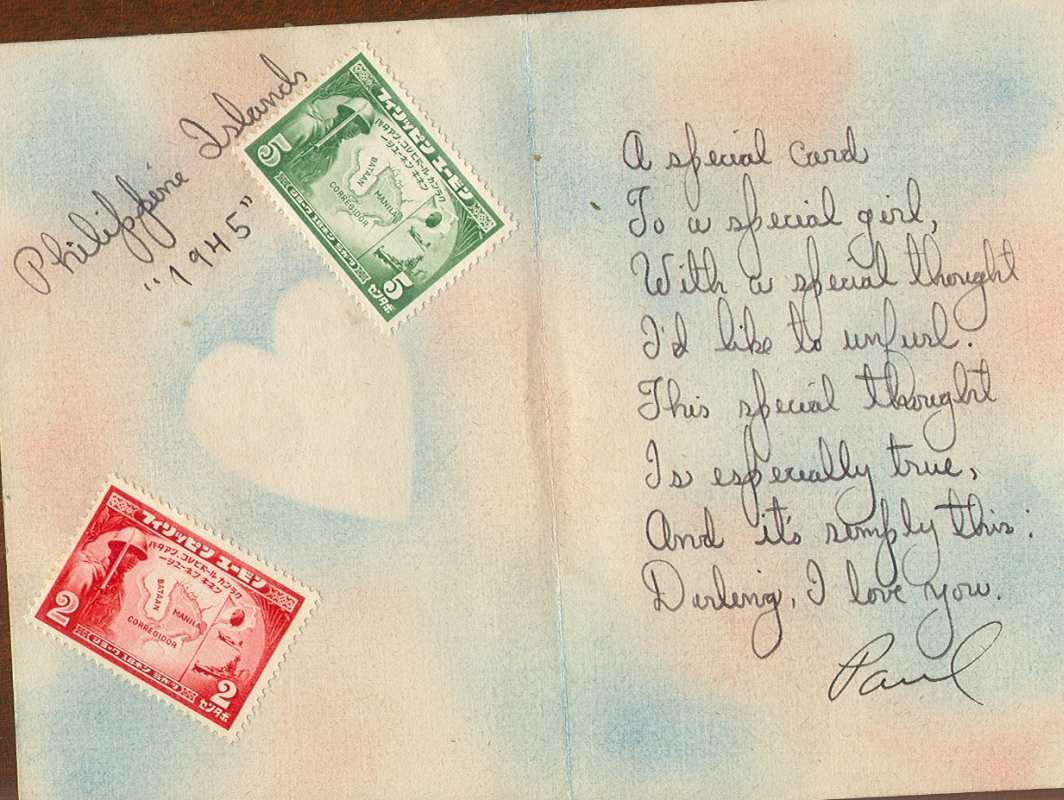 Philippine Islands
"1945"
フィリッピン ユービン
バタアン、コレヒドール カンラク
一シューネン キネン
5
BATAAN
MANILA
CORREGIDOR
5
センタボ
フィリッピン ユービン
バタアン、コレヒドール カンラク
一シューネン キネン
2
BATAAN
MANILA
CORREGIDOR
2
センタボ
A special card
To a special girl,
With a special thought
I'd like to unfurl.
This special thought
Is especially true,
And it's simply this:
Darling, I love you.
Paul